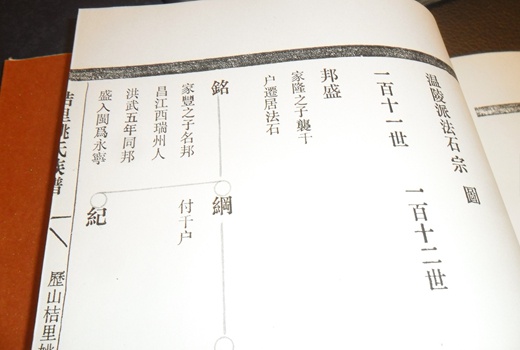 温陵派法石宗圖
一百十一世
一百十二世
邦盛
家隆之子襲千
户遷居法石
銘
綱
家豐之子名邦
付千户
昌江西瑞州人
洪武五年同邦
盛入閩爲永寧
紀
桔里姚氏族譜
歷山桔里姚